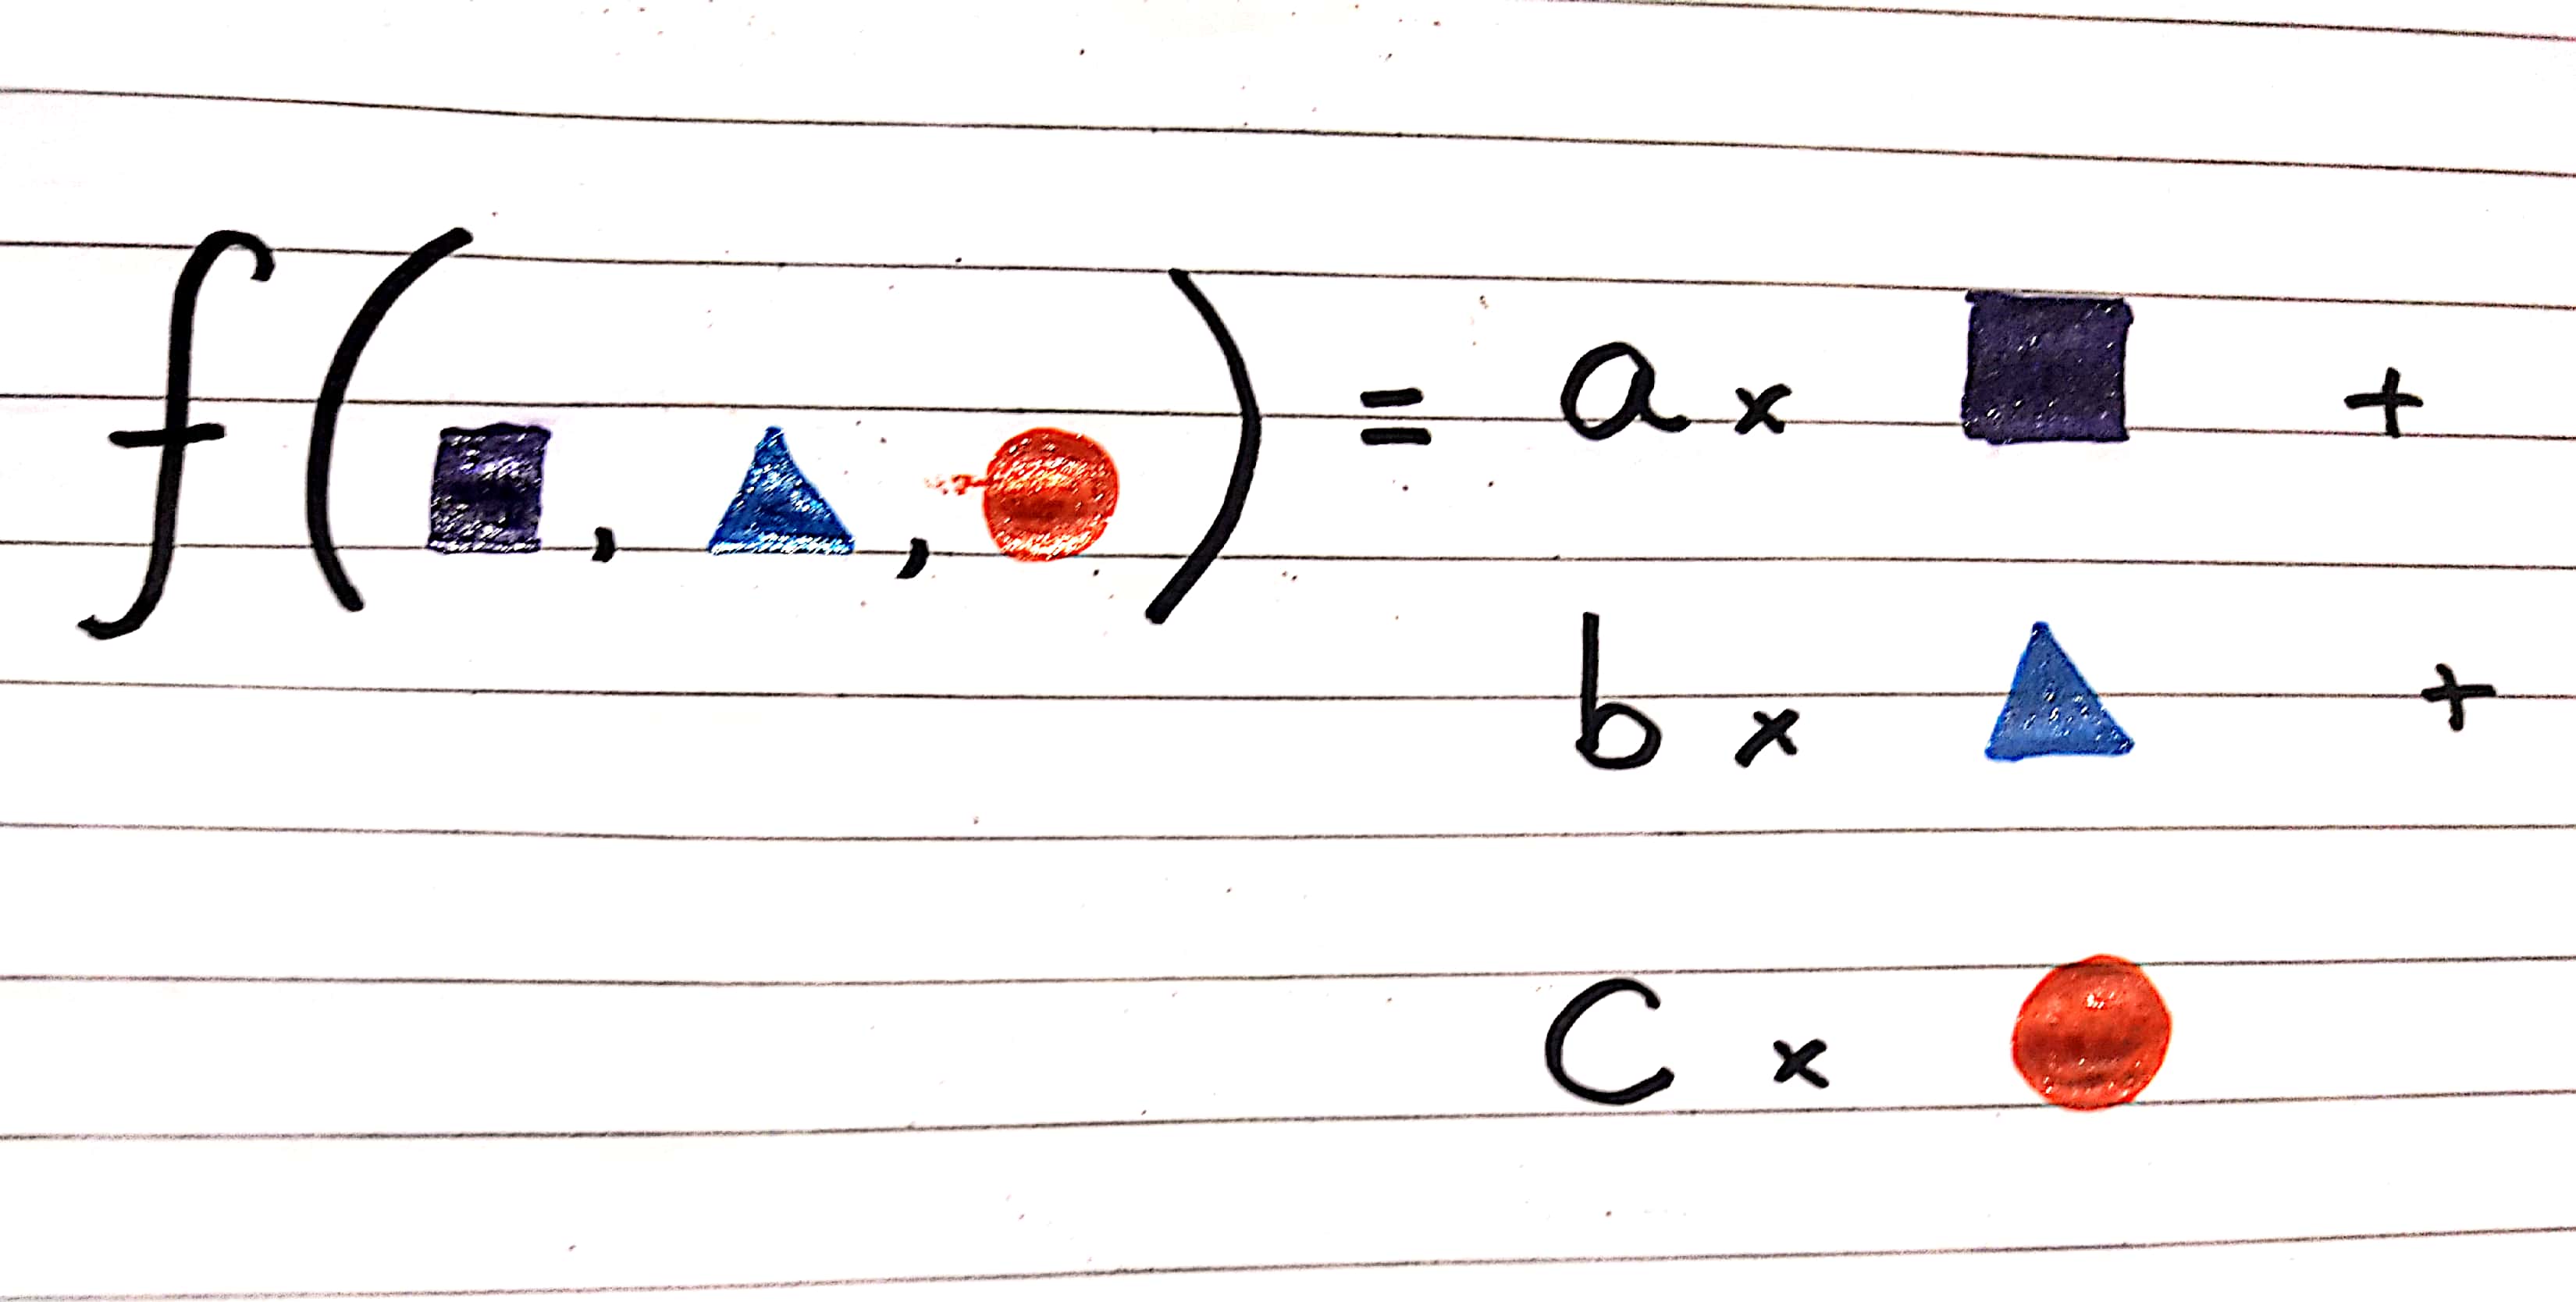 f(■, ▲, ●) = a × ■ +
b × ▲ +
c × ●